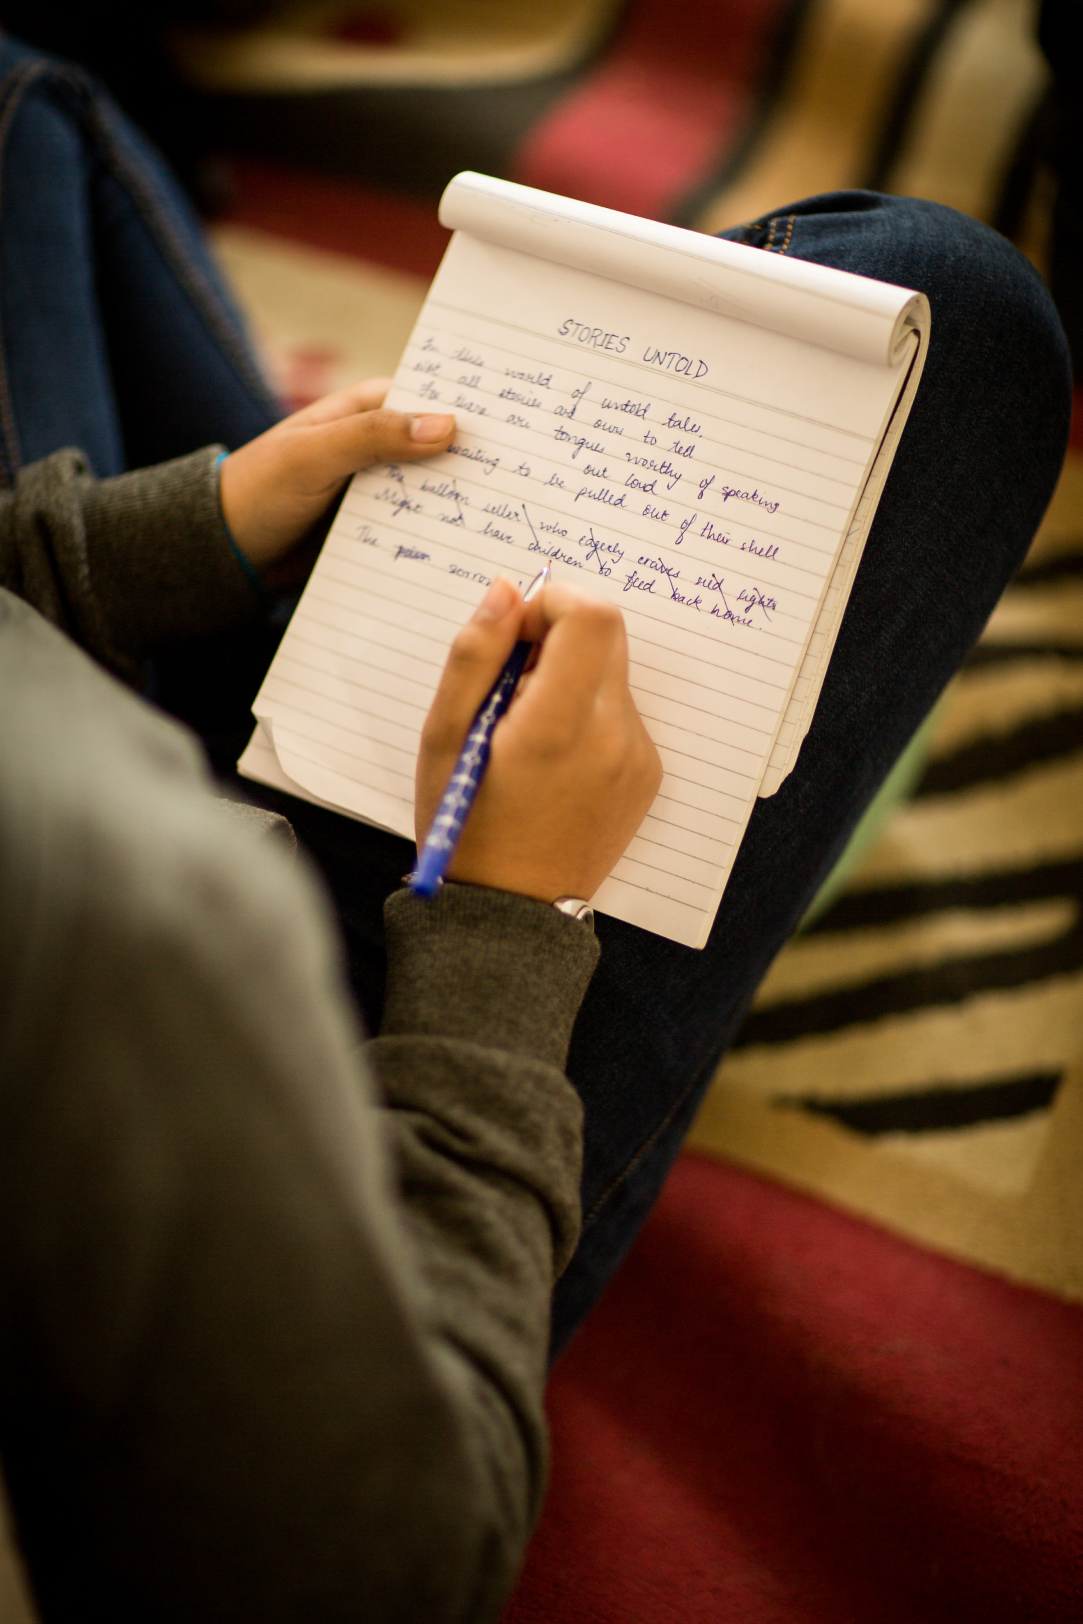 STORIES UNTOLD
In this world of untold tales,
Not all stories are ours to tell
For there are tongues worthy of speaking
out loud
waiting to be pulled out of their shell
The balloon seller who eagerly craves red lights
Might not have children to feed back home.
The